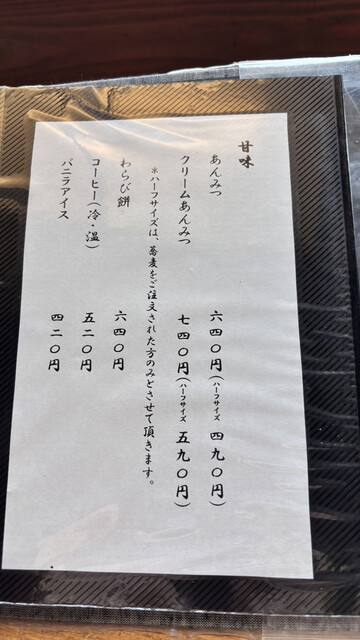 甘味
あんみつ 六四〇円(ハーフサイズ 四九〇円)
クリームあんみつ 七四〇円(ハーフサイズ 五九〇円)
*ハーフサイズは、蕎麦をご注文された方のみとさせて頂きます。
わらび餅 六四〇円
コーヒー(冷・温) 五二〇円
バニラアイス 四二〇円